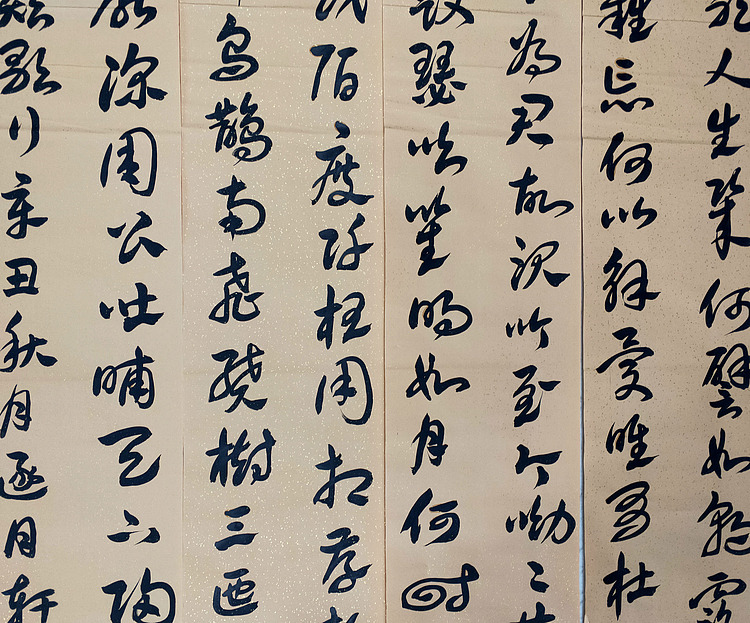 人生幾何譬如朝露
難忘何以解憂唯有杜
為君故沉吟至今呦〻
鼓瑟吹笙明如月何时
陌度阡枉用相存
烏鵲南飛繞樹三匝
深周公吐哺天下歸
歌行辛丑秋月逐月軒